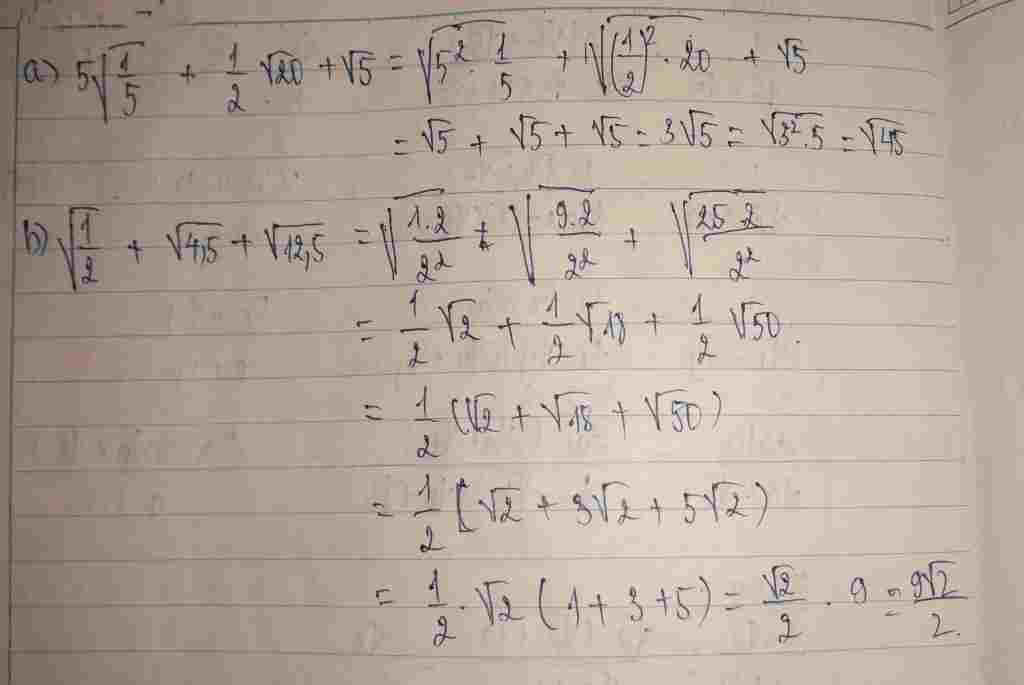 a) 5√(1/5) + 1/2 √20 + √5 = √(5² · 1/5) + √((1/2)² · 20) + √5
= √5 + √5 + √5 = 3√5 = √(3² · 5) = √45
b) √(1/2) + √4,5 + √12,5 = √(1.2/2²) + √(9.2/2²) + √(25 2/2²)
= 1/2 √2 + 1/2 √18 + 1/2 √50.
= 1/2 (√2 + √18 + √50)
= 1/2 (√2 + 3√2 + 5√2)
= 1/2 · √2 (1 + 3 + 5) = √2/2 · 9 = 9√2/2.